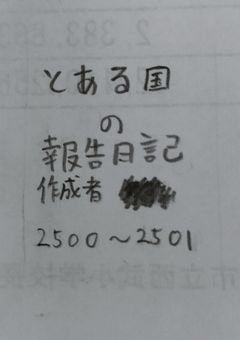 とある国
の
報告日記
作成者
2500～2501